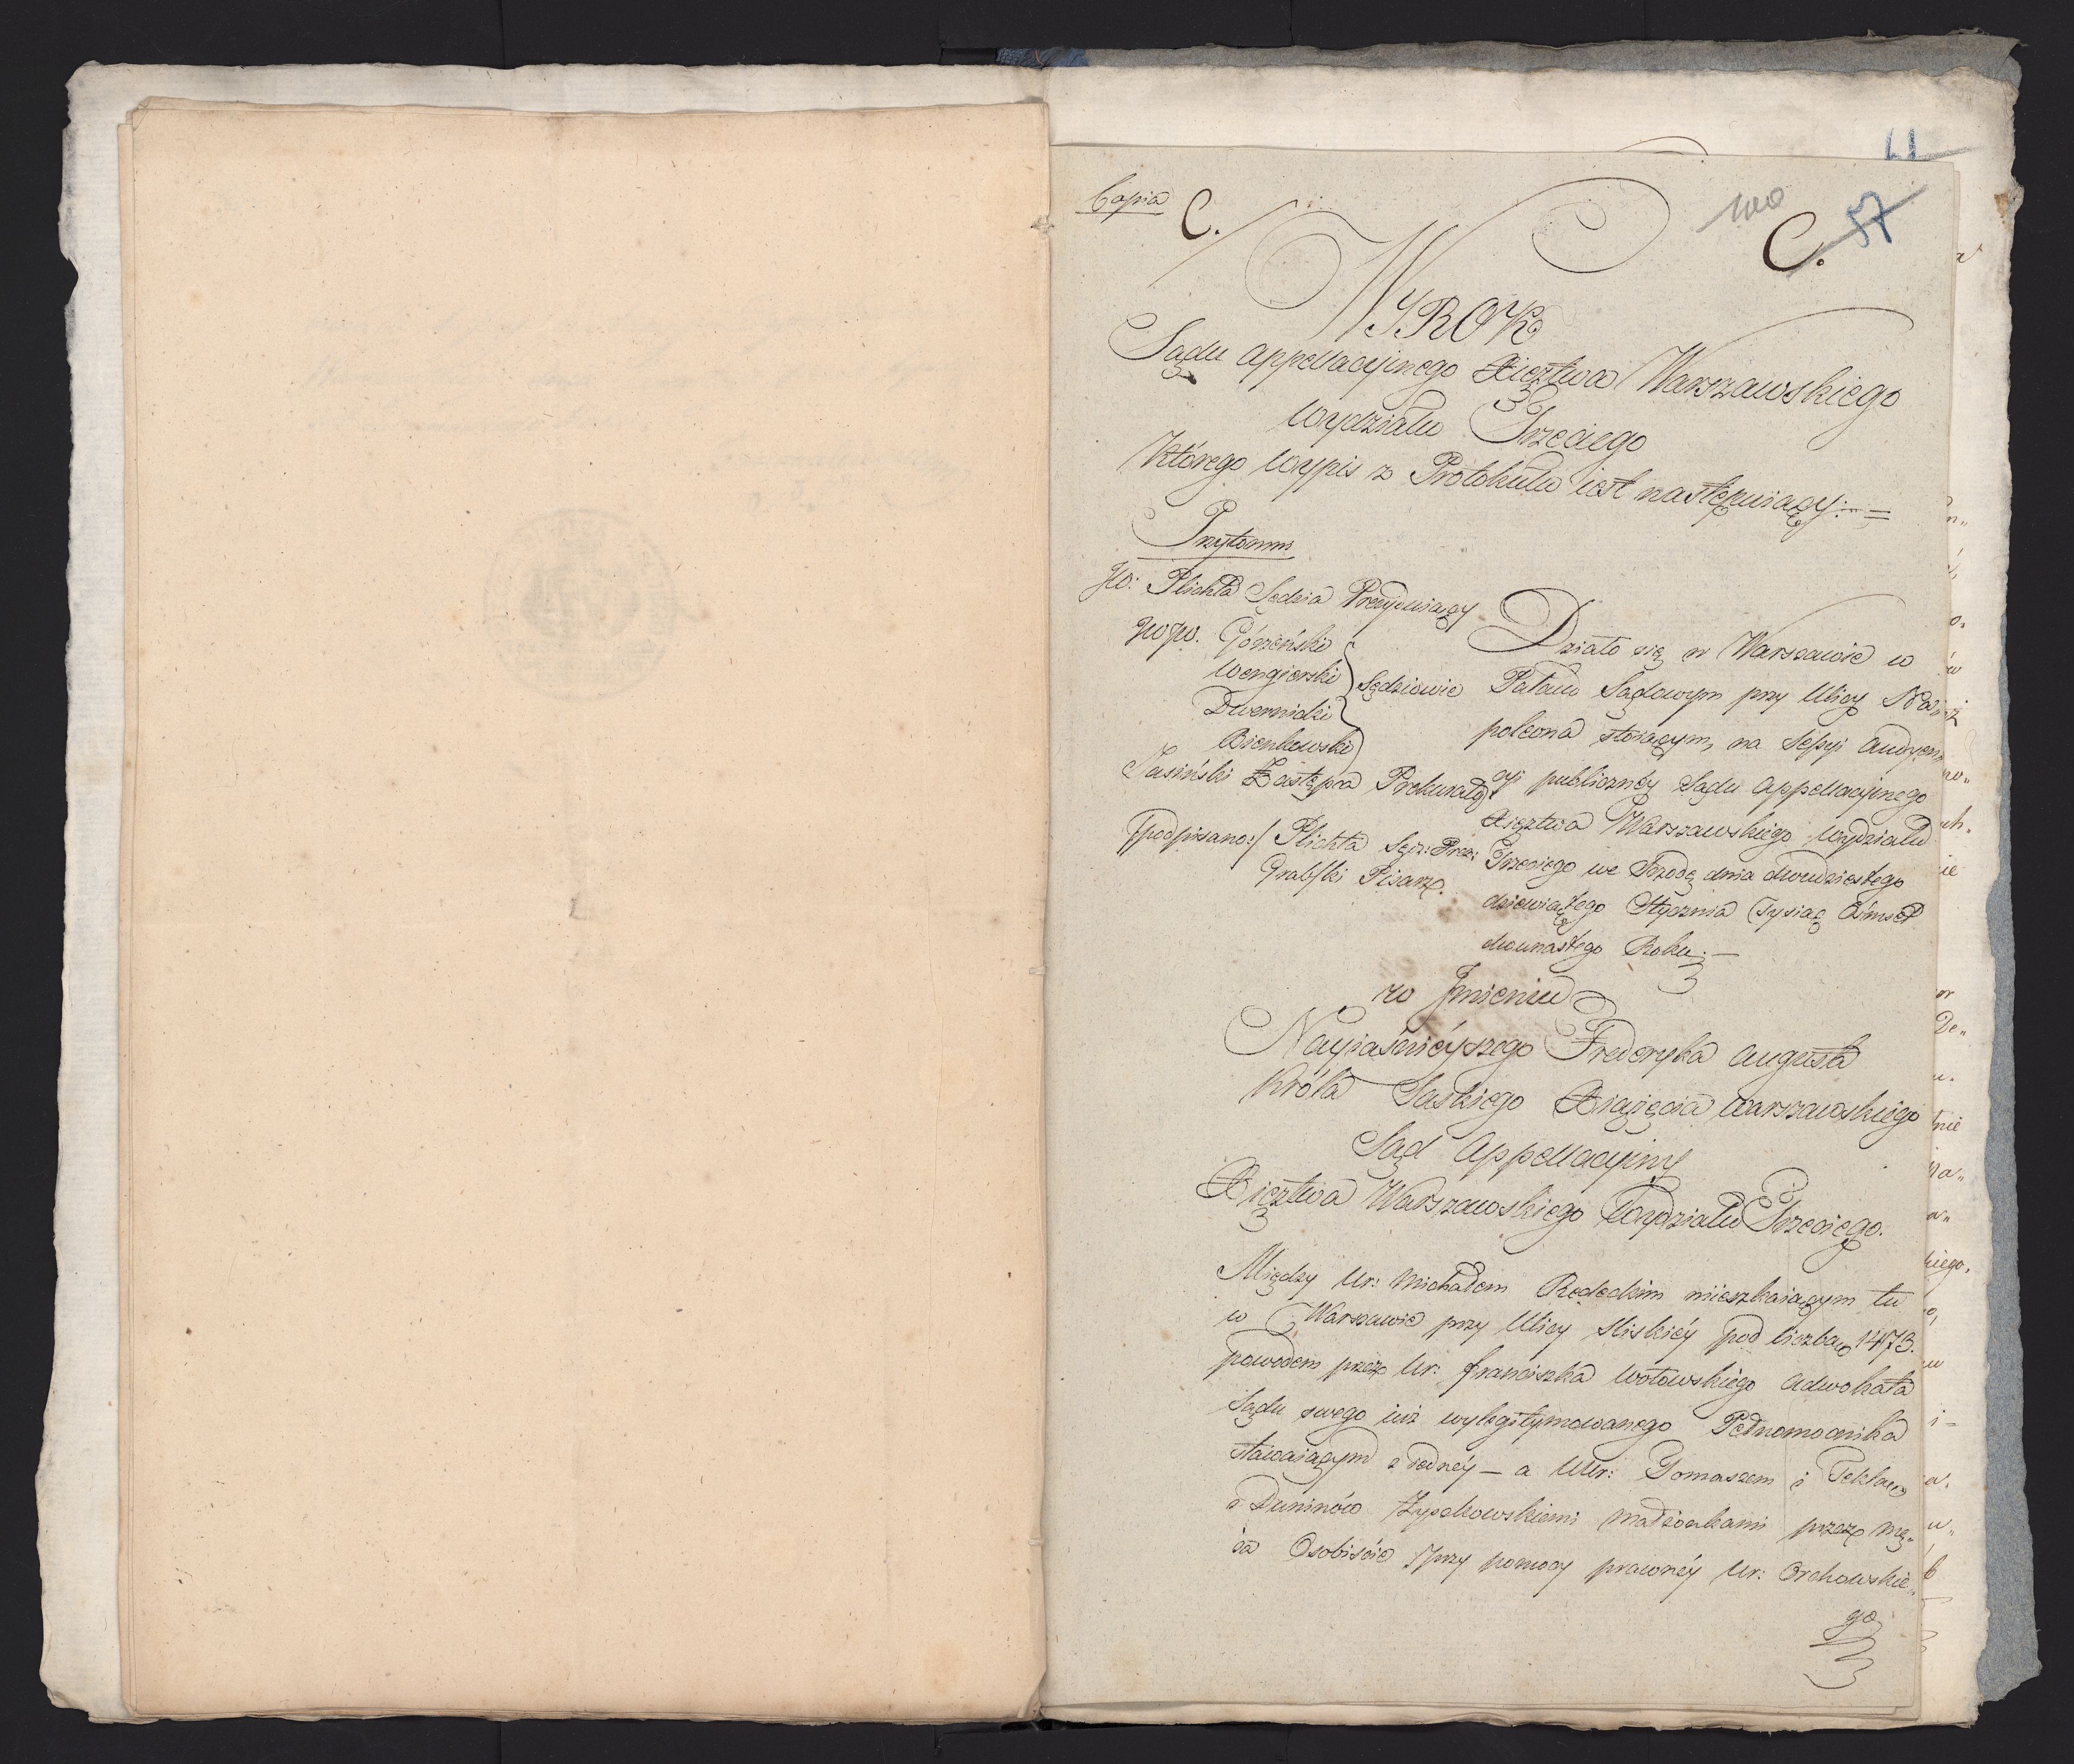 61
Copia C.
100
C. 57
WYROK
Sądu Appellacyjnego Xięztwa Warszawskiego
Wydziału Trzeciego
Którego wypis z Protokułu iest następuiący:=
Przytomni
JW: Plichta Sędzia Prezyduiący
WW. Górzeński
Wengierski
Dwernicki
Bieńkowski
Sędziowie
Jasiński Zastępca Prokurato
/podpisano:/ Plichta Sędz: Prez:
Grabski Pisarz.
Działo się w Warszawie w
Pałacu Sądowym przy Ulicy Na„
poleona stoiącym, na Sessyi Audyen„
cyi publicznéy Sądu Appellacyinego
Xięztwa Warszawskiego Wydziału
Trzeciego we Srzodę dnia dwudziestego
dziewiątego Stycznia Tysiąc Ośmset
dwunastego Roku.—
w Jmieniu
Nayiaśnieyszego Fryderyka Augusta
Króla Saskiego Xiążęcia Warszawskiego
Sąd Appellacyiny
Xięztwa Warszawskiego Wydziału Trzeciego.
Między Ur: Michałem Rędeckim mieszkaiącym tu
w Warszawie przy Ulicy Sliskiéy pod liczbą 1473.
powodem przez Ur: Franciszka Wołowskiego Adwokata
Sądu swego iuż wylegitymowanego Pełnomocnika
stawaiącym z iednéy — a UUr: Tomaszem i Teklą
z Duninów małżonkami przez mę„
ża Osobiście przy pomocy prawnéy Ur: Orchowskie„
go